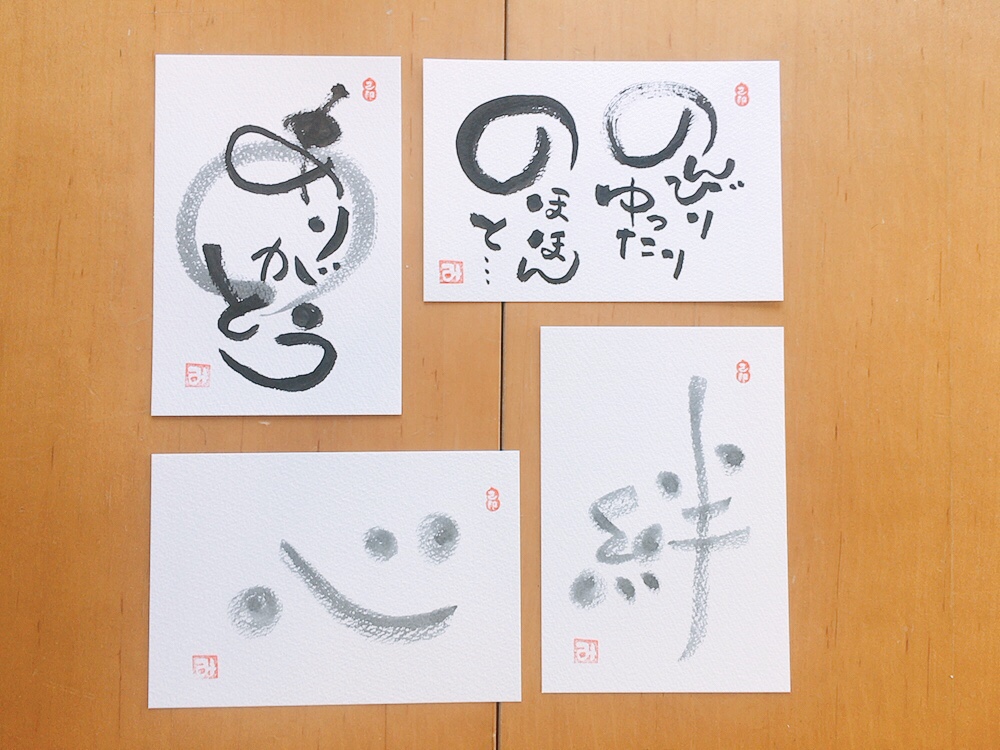 ありがとう
み
のんびり
ゆったり
のほほん
と…
み
心
み
絆
み